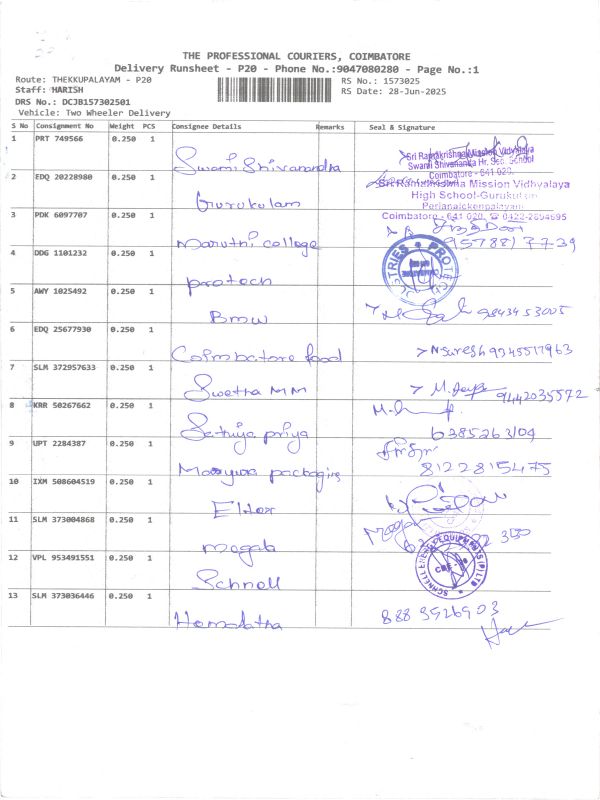 THE PROFESSIONAL COURIERS, COIMBATORE
Delivery Runsheet - P20 - Phone No.:9047080280 - Page No.:1
Route: THEKKUPALAYAM - P20 RS No.: 1573025
Staff: HARISH RS Date: 28-Jun-2025
DRS No.: DCJB157302501
Vehicle: Two Wheeler Delivery
S No Consignment No Weight PCS Consignee Details Remarks Seal & Signature
1 PRT 749566 0.250 1 Swami Shivanandha
Sri Ramakrishna Mission Vidyalaya
Swami Shivananda Hr. Sec. School
Coimbatore - 641 020.
2 EDQ 20228980 0.250 1 Gurukulam
Sri Ramakrishna Mission Vidhyalaya
High School-Gurukulam
Perianaickenpalayam
Coimbatore - 641 020. ☎ 0422-2694695
3 PDK 6097707 0.250 1 Maruthi college
4 DDG 1101232 0.250 1 protech
5 AWY 1025492 0.250 1 BMW 9843453005
6 EDQ 25677930 0.250 1 Coimbatore food N Suresh 9345517963
7 SLM 372957633 0.250 1 Swetha MM 9442035572
8 KRR 50267662 0.250 1 Sathiya priya
9 UPT 2284387 0.250 1 packaging 8122815475
10 IXM 508604519 0.250 1
11 SLM 373004868 0.250 1
12 VPL 953491551 0.250 1 Schnell
SCHNELL ENERGY EQUIPMENTS (P) LTD
13 SLM 373036446 0.250 1 Hemalatha 888 3926903